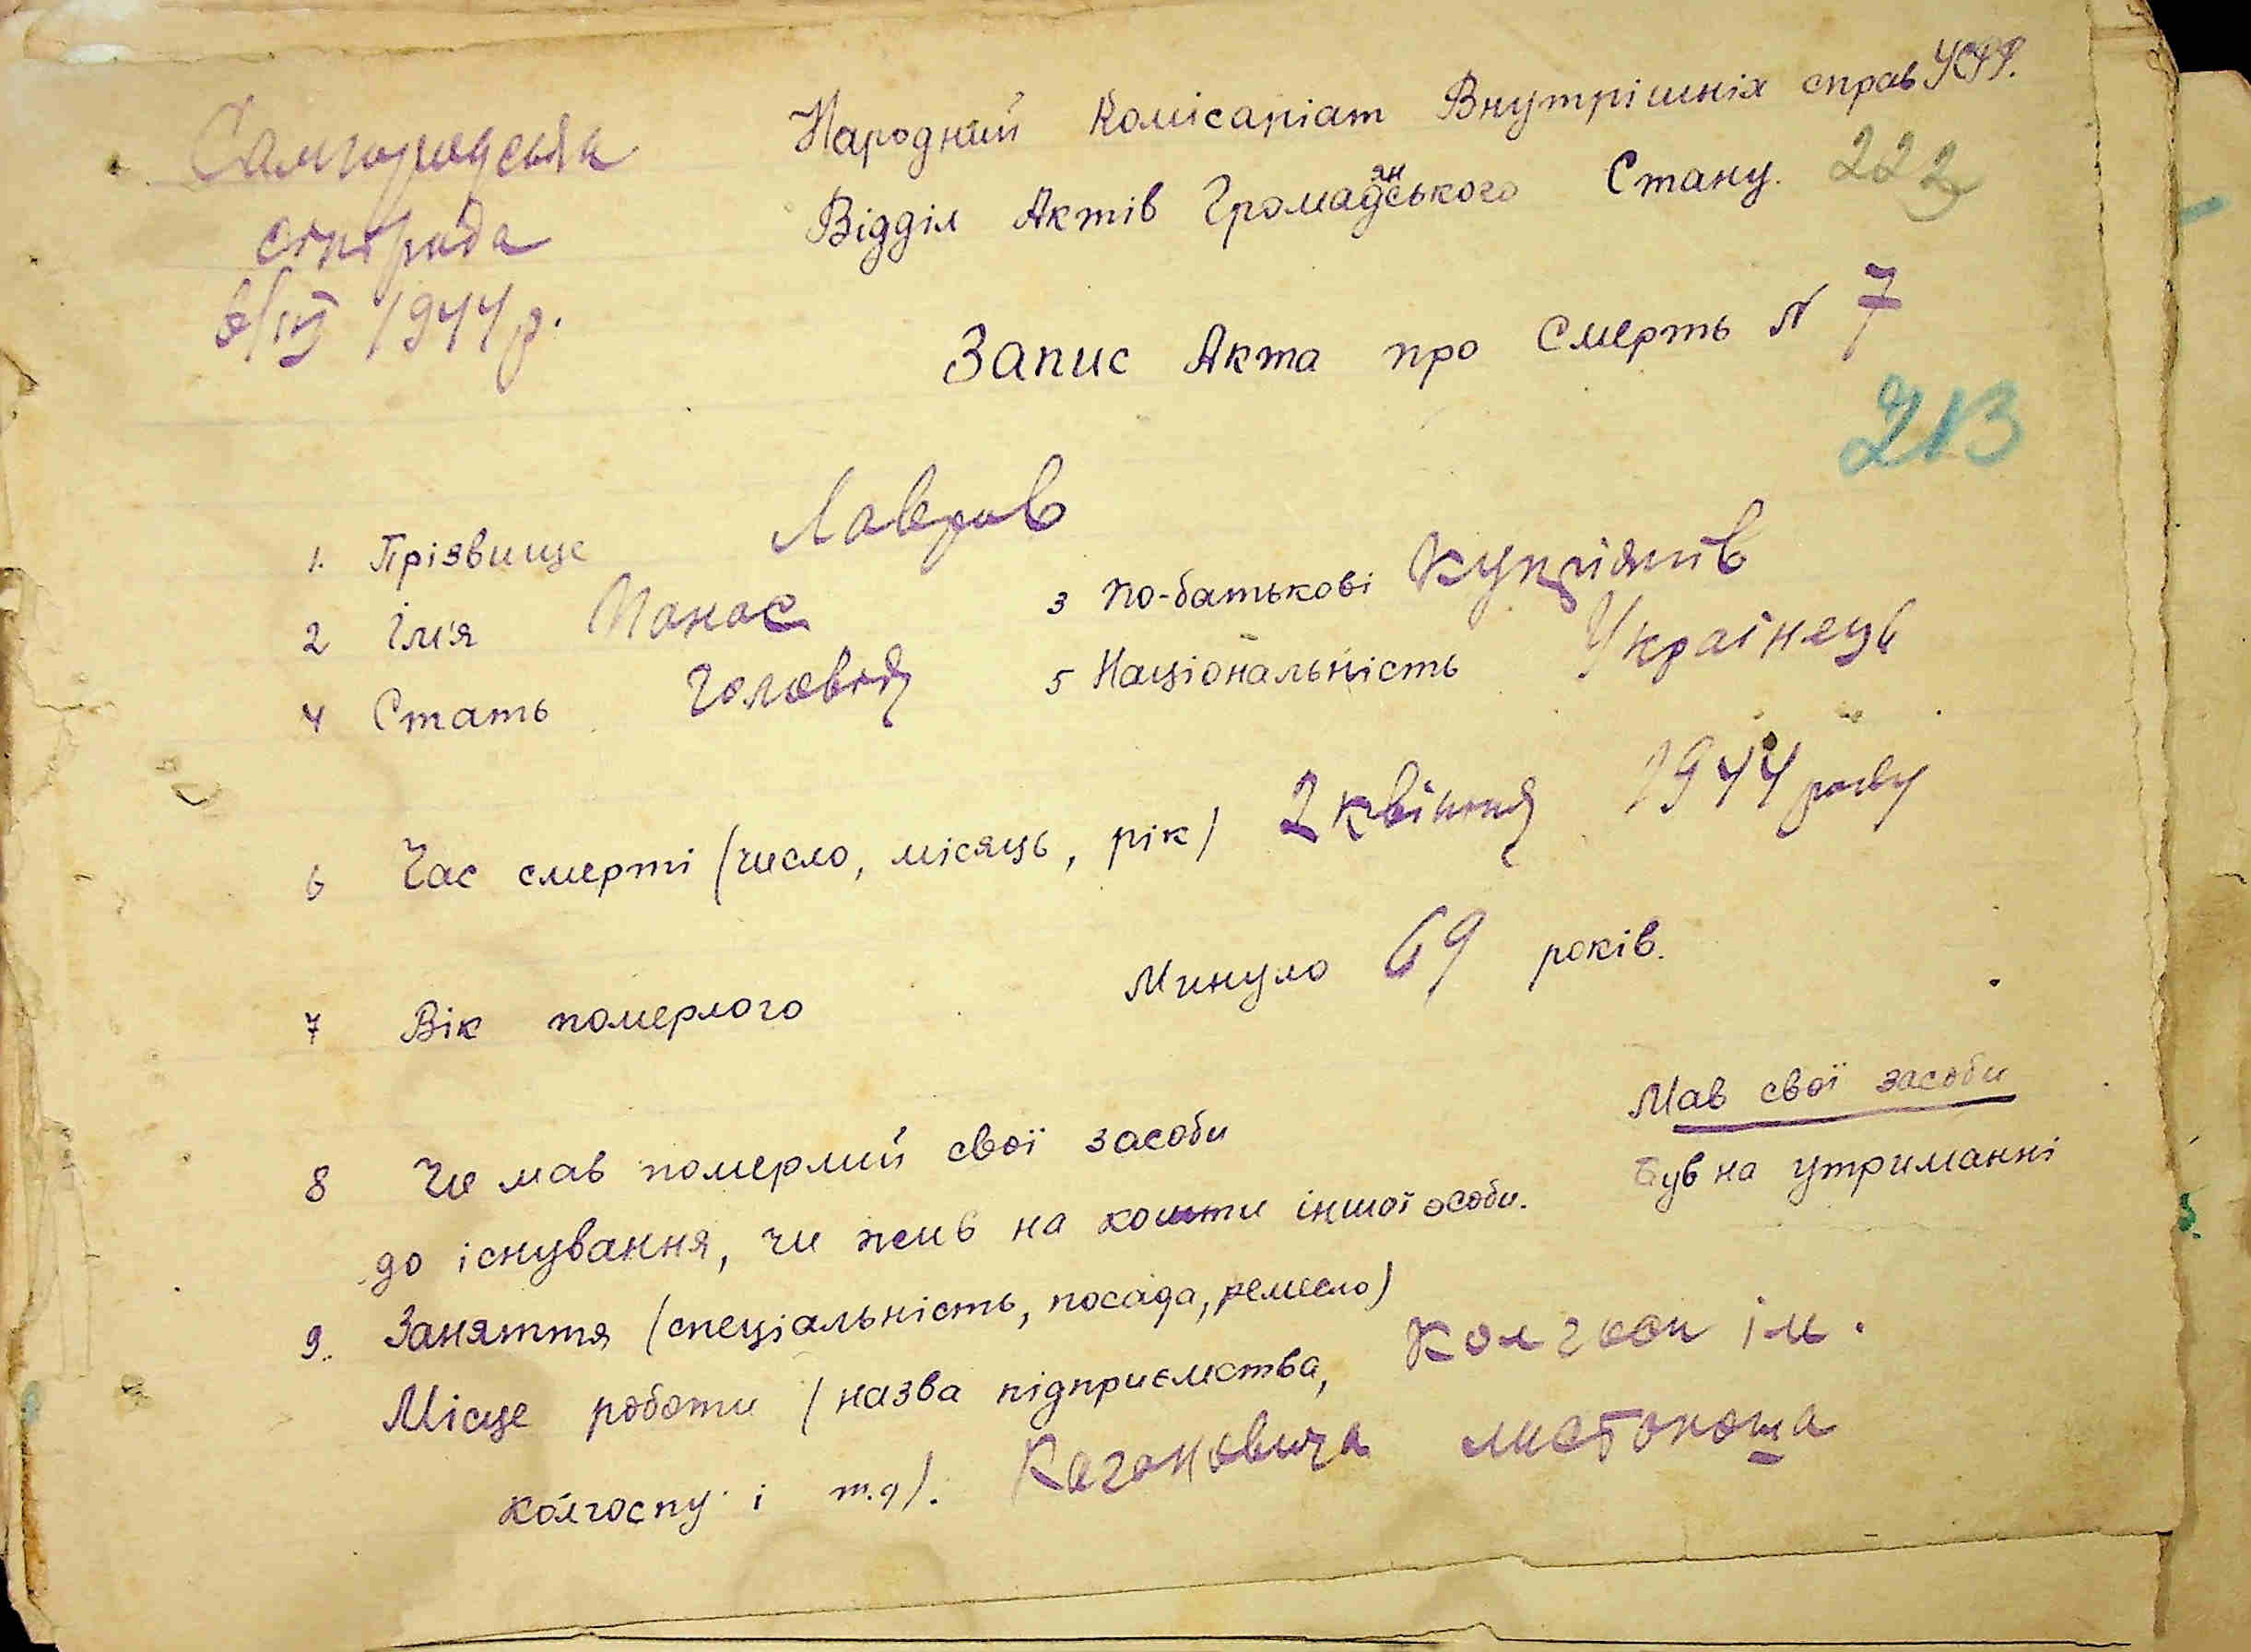 Самгородська
сільрада
6/IV 1944 р.
Народний Комісаріат Внутрішніх справ УРСР.
Відділ Актів Громадянського Стану. 222
Запис Акта про Смерть N 7
213
1. Прізвище Лаврив
2 Імʼя Панас 3 по-батькові Купріянів
4 Стать Головід 5 Національність Украінець
6 Час смерті (число, місяць, рік) 2 квітня 1944 року
7 Вік померлого Минуло 69 років.
8 Чи мав померлий свої засоби Мав свої засоби
до існування, чи жив на кошти іншої особи. Був на утриманні
9. Заняття (спеціальність, посада, ремесло)
Місце роботи (назва підприємства, Колгосп ім.
колгоспу і т.д). Кагановича листоноша